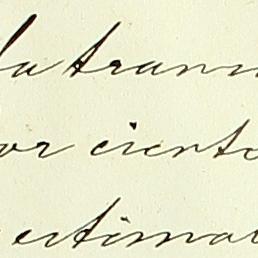 la tran
or ciento
estima